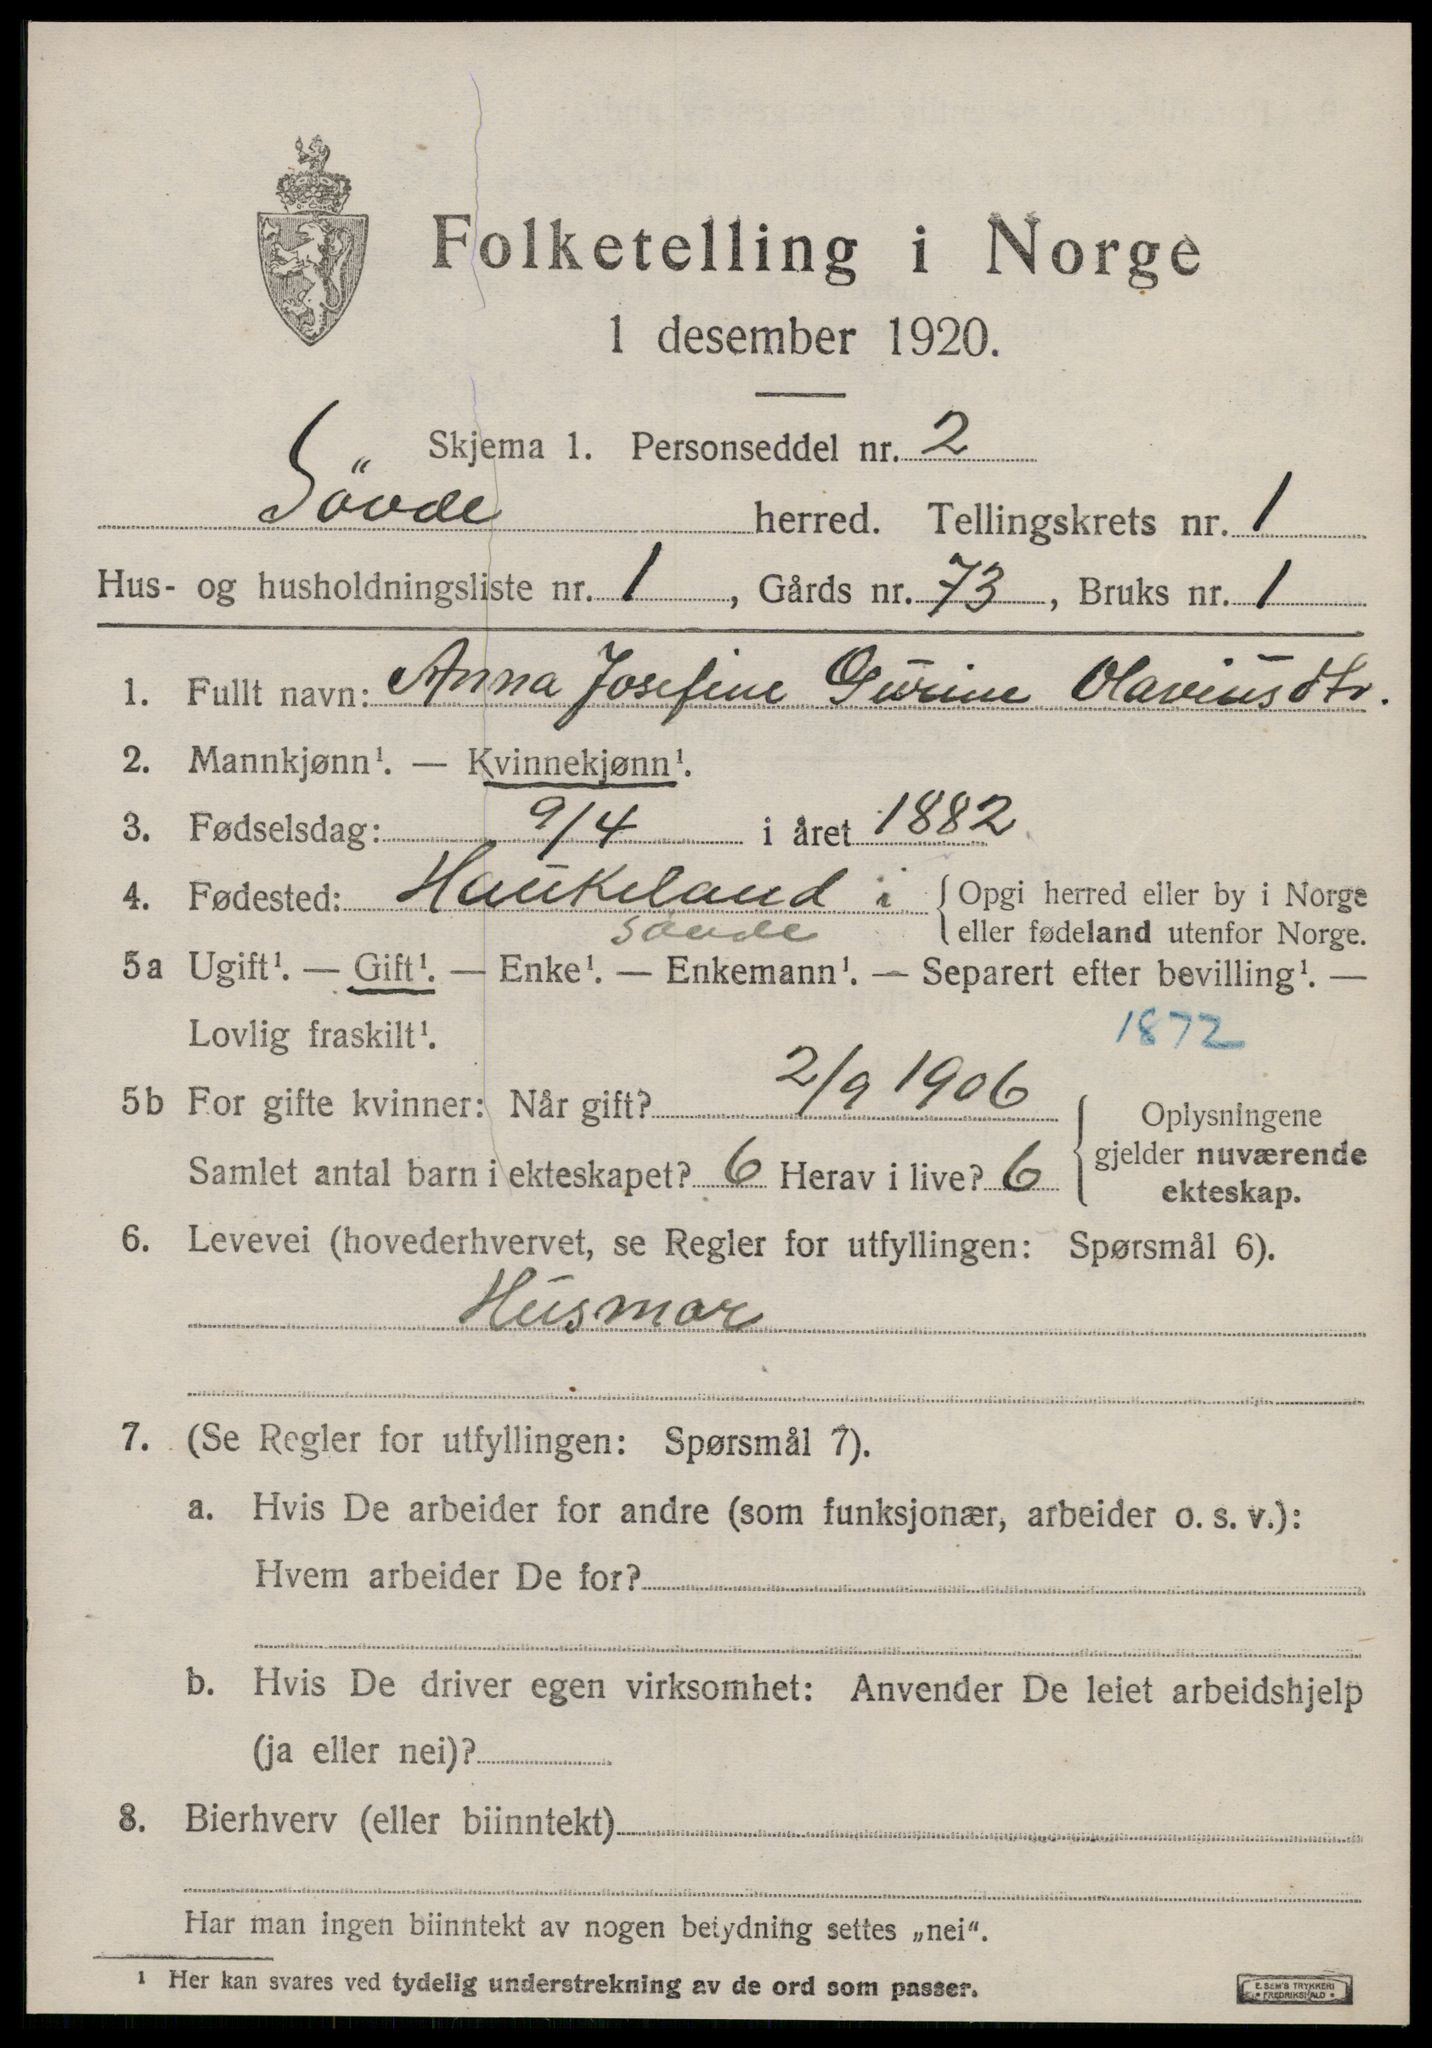 Folketelling i Norge
1 desember 1920.
Skjema 1. Personseddel nr. 2
Sövde herred. Tellingskrets nr. 1
Hus- og husholdningsliste nr. 1, Gårds nr. 73, Bruks nr. 1
1. Fullt navn: Anna Josefine Gurine Olaviusdtr.
2. Mannkjønn¹. — Kvinnekjønn¹.
3. Fødselsdag: 9/4 i året 1882
4. Fødested: Haukeland i { Opgi herred eller by i Norge
Sövde eller fødeland utenfor Norge.
5a Ugift¹. — Gift¹. — Enke¹. — Enkemann¹. — Separert efter bevilling¹. —
Lovlig fraskilt¹. 1872
5b For gifte kvinner: Når gift? 2/9 1906 { Oplysningene
Samlet antal barn i ekteskapet? 6 Herav i live? 6 gjelder nuværende
ekteskap.
6. Levevei (hovederhvervet, se Regler for utfyllingen: Spørsmål 6).
Husmor
7. (Se Regler for utfyllingen: Spørsmål 7).
a. Hvis De arbeider for andre (som funksjonær, arbeider o. s. v.):
Hvem arbeider De for?
b. Hvis De driver egen virksomhet: Anvender De leiet arbeidshjelp
(ja eller nei)?
8. Bierhverv (eller biinntekt)
Har man ingen biinntekt av nogen betydning settes „nei“.
¹ Her kan svares ved tydelig understrekning av de ord som passer.
E. SEM'S TRYKKERI
• FREDRIKSHALD •